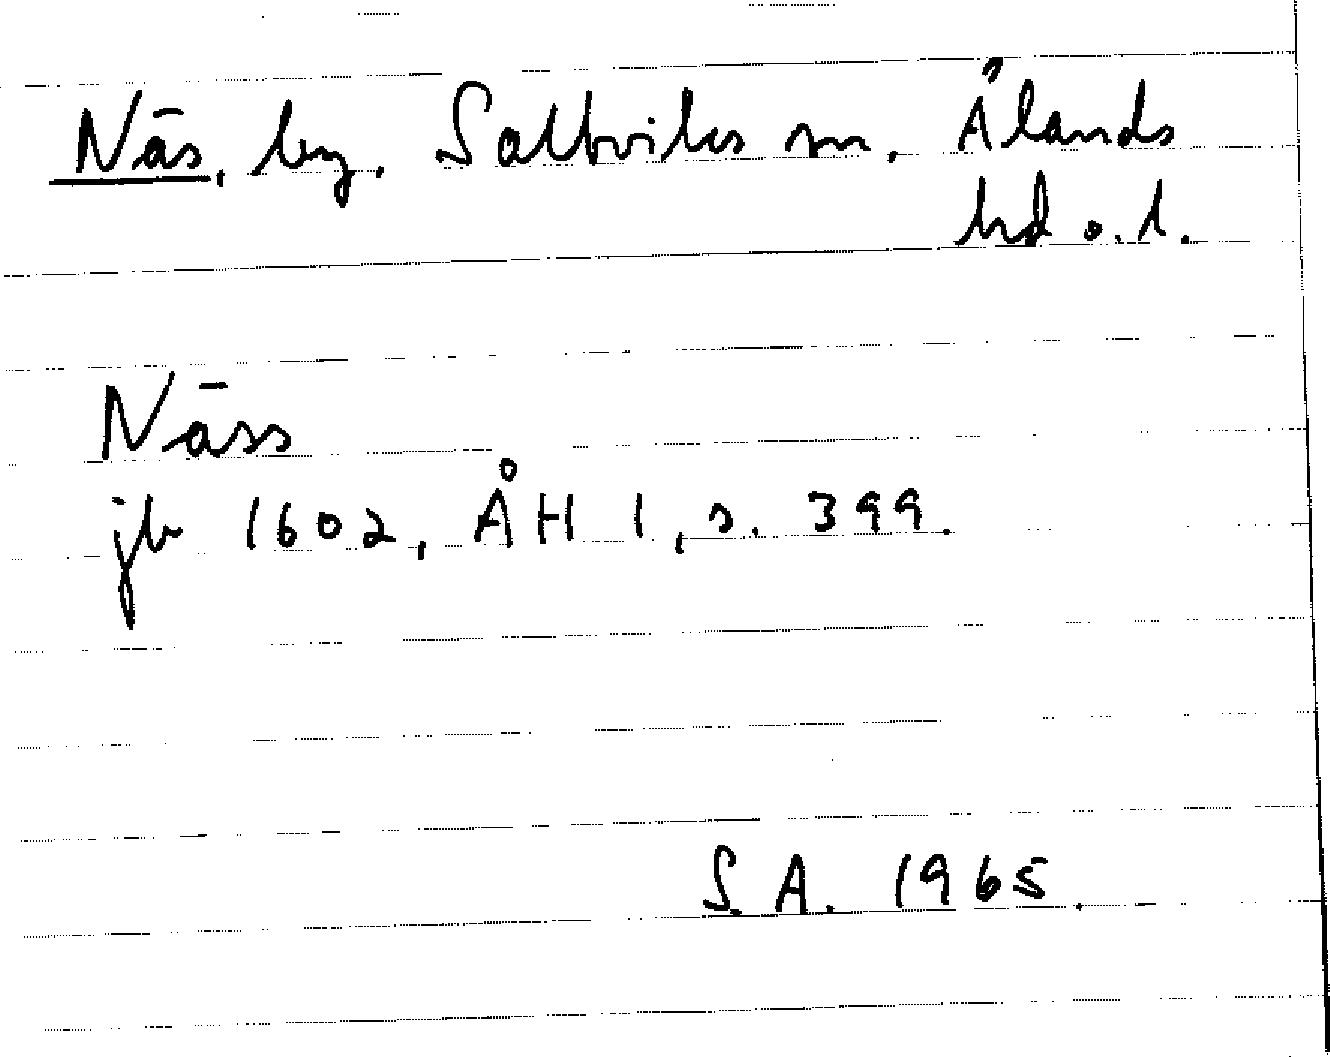 Näs, by. Saltviks sn. Ålands
hd o. l.
Näss
jb 1602, ÅH 1, s. 399.
S.A. 1965.